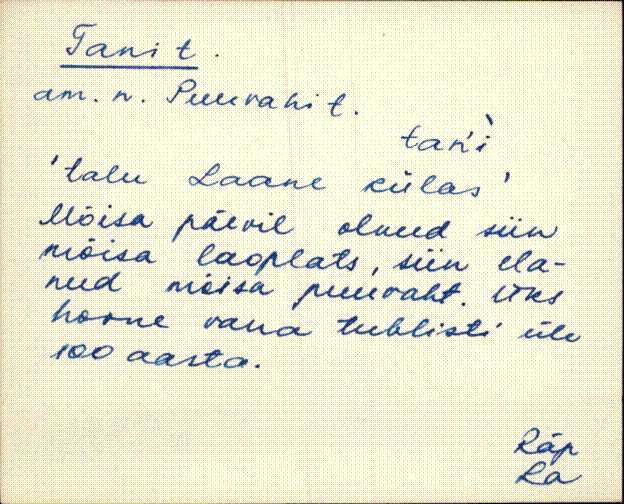 Tani t.
am. n. Puuvahi t.
tań'ì
'talu Laane külas'
Mõisa päevil olnud siin
mõisa laoplats, siin ela-
nud mõisa puuvaht. Üks
hoone vana tublisti üle
100 aasta.
Räp
Ra